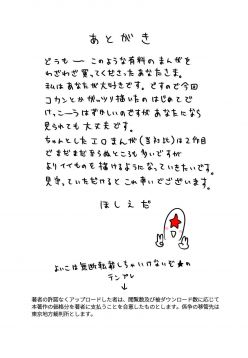 あとがき
どうもー このような有料のまんがを
わざわざ買ってくださったあなたさま。
私はあなたが大好きです。ですので今回
コカンとかがッツリ描いたの はじめてで
けっこーうはずかしいのですが あなたになら
見られても大丈夫です。
ちゃんとしたエロまんが(当社比)は2作目
でまだまだ至らぬところも多いですが
よりイイものを描けるようになっていきたいです。
見守っていただけるとこの幸いでございます。
ほしえだ
よいこは無断転載しちゃいけないぞ★の
テンプレ
↓
著者の許諾なくアップロードした者は、閲覧数及び総ダウンロード数に応じて
本著作の価格分を著者に支払うことを合意したものとします。係争の移管先は
東京地方裁判所とします。